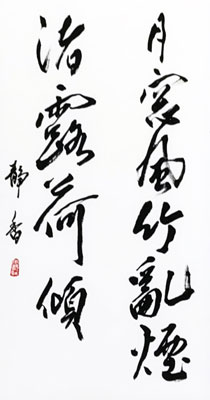 月窓風竹亂煙
渚露荷傾
靜香